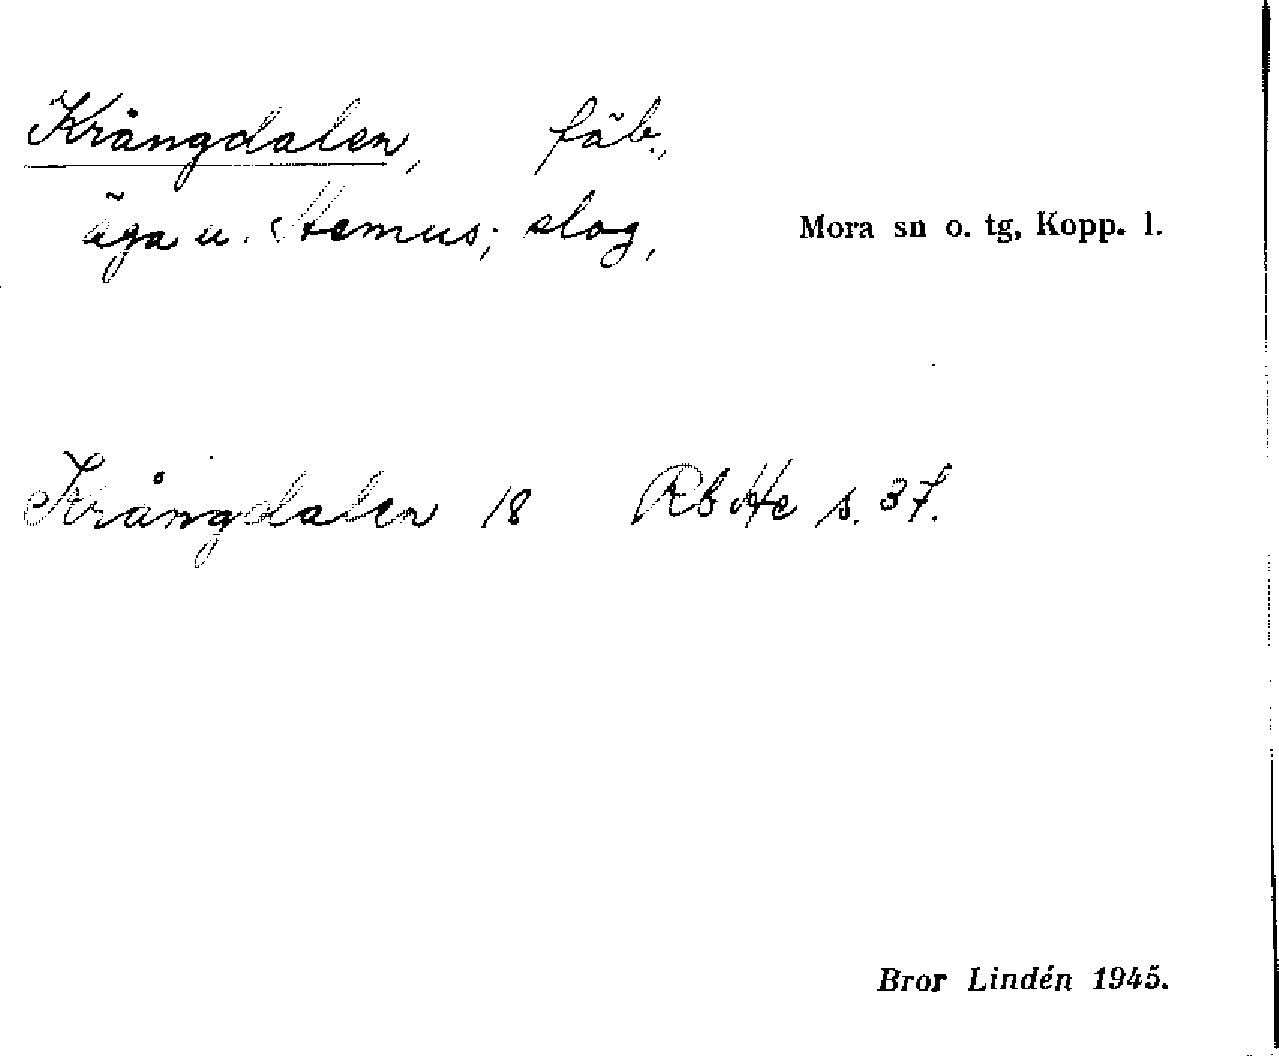 Krångdalen, fäb.,
äga u. Hemus; slog,
Mora sn o. tg, Kopp. l.
Krångdalen 18 Rb He s. 37.
Bror Lindén 1945.